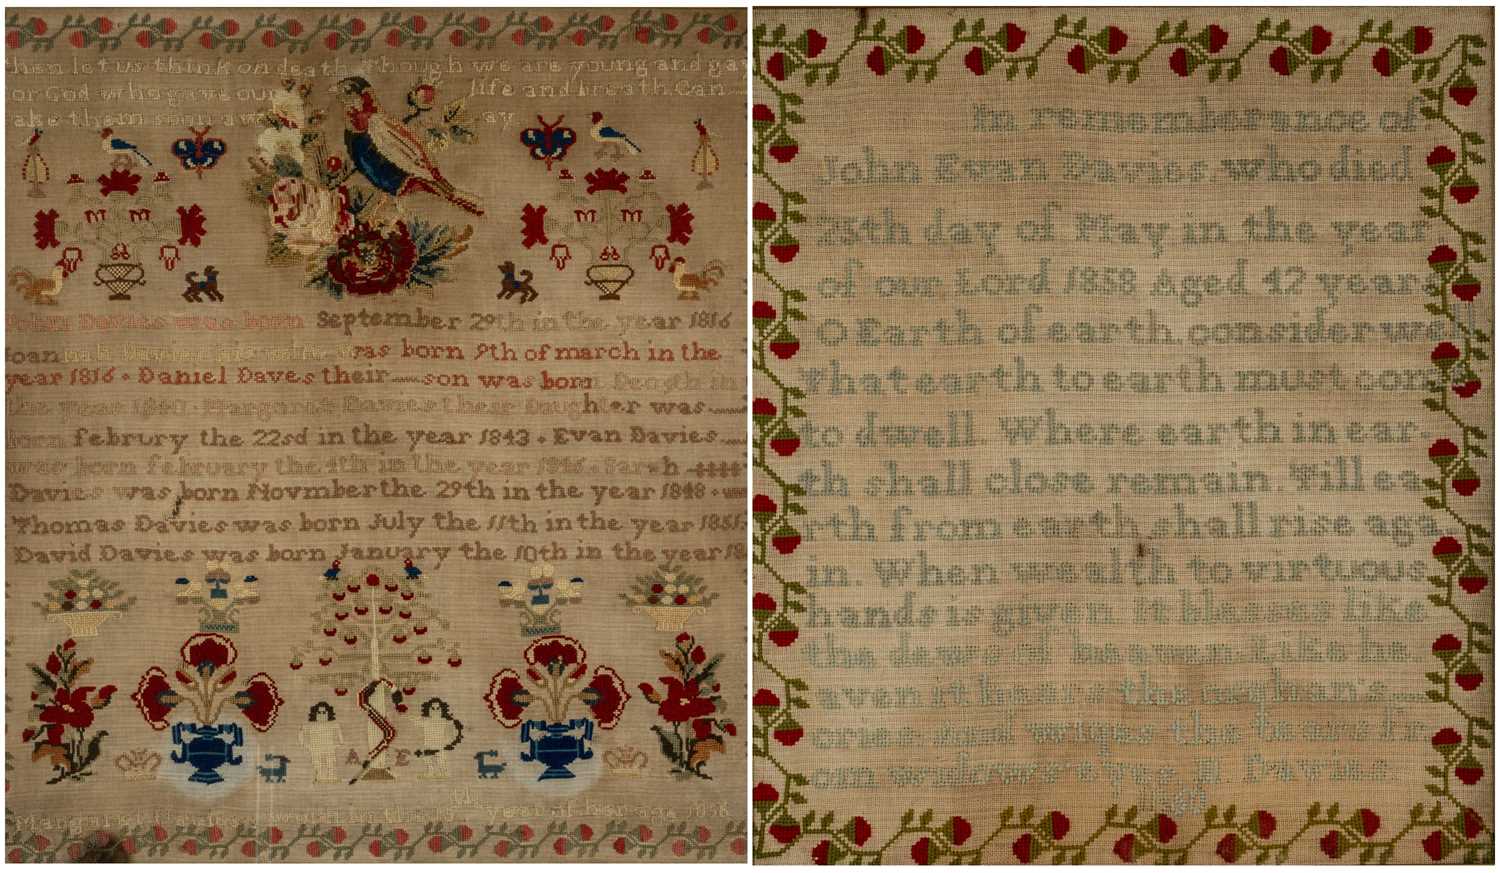 hen let us think on death though we are young and gay
or God who gave our life and breath Can
ake them soon aw ay
M M
M M
John Davies was born September 29th in the year 1816
Joan nah Davies his wife was born 9th of march in the
year 1816 • Daniel Daves their son was born in
the year 1840 • Margaret Davies their Daughter was
born februry the 22sd in the year 1843 • Evan Davies
was born february the 4th in the year 1846 • Sarah
Davies was born Novmber the 29th in the year 1848 •
Thomas Davies was born July the 11th in the year 1851
David Davies was born January the 10th in the year 18
A E
Margaret Davies th year of her age 1858
In rememberance of
John Evan Davies who died
25th day of May in the year
of our Lord 1858 Aged 42 years
O Earth of earth consider well
That earth to earth must come
to dwell. Where earth in ear-
th shall close remain. Till ea
rth from earth shall rise aga
in. When wealth to virtuous
hands is given it blesses like
the dews of heaven. Like he
aven it hears the orphan's
cries and wipes the tears fr
om widows eyes. Davies